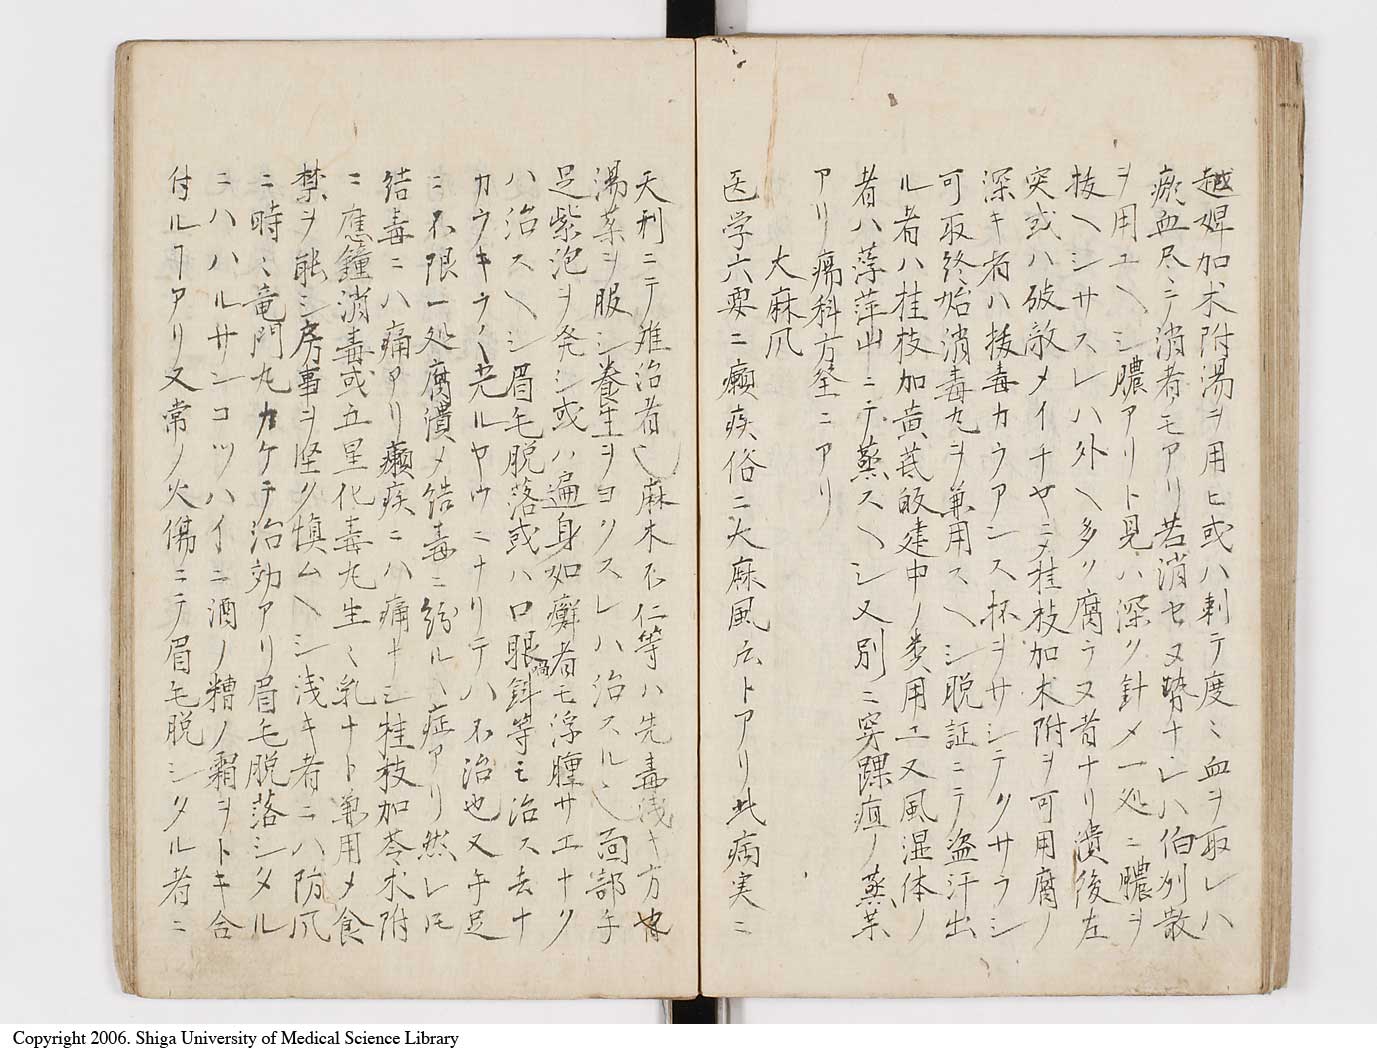 越婢加朮附湯ヲ用ヒ或ハ刺テ度〻血ヲ取レハ
瘀血尽テ消者モアリ若消セヌ勢ナレハ伯州散
ヲ用ユヘシ膿アリト見ハ深ク針〆一処ニ膿ヲ
抜ヘシサスレハ外ヘ多ク腐ラヌ者ナリ潰後左
突或ハ破敵メイチヤニ〆桂枝加朮附ヲ可用腐ノ
深キ者ハ抜毒カウアンス杯ヲサシテクサラシ
可取終始消毒丸ヲ兼用スヘシ脱証ニテ盗汗出
ル者ハ桂枝加黄芪帰建中ノ類用エ又風湿体ノ
者ハ浮萍艸ニテ蒸スヘシ又別ニ穿踝疽ノ蒸茱
アリ瘍科方筌ニアリ
大麻风
医学六要ニ癩疾俗ニ大麻風云トアリ此病実ニ
天刑ニテ難治者也麻木不仁等ハ先毒浅キ方也
湯薬ヲ服シ養生ヲヨクスレハ治スル也面部手
足紫泡ヲ発シ或ハ遍身如癬者モ浮腫サエナク
ハ治スヘシ眉毛脱落或ハ口眼喎斜等モ治ス去ナ
カラキラ〱光ルヤウニナリテハ不治也又手足
ニ不限一処腐潰〆結毒ニ紛ルヽ症アリ然レ𪜈
結毒ニハ痛アリ癩疾ニハ痛ナシ桂枝加苓朮附
ニ應鐘消毒或五星化毒丸生〻乳ナト兼用〆食
禁ヲ能シ房事ヲ堅ク慎ムヘシ浅キ者ニハ防风
ニ時〻竜門丸カケテ治効アリ眉毛脱落シタル
ニハハルサンコツハイニ酒ノ糟ノ霜ヲトキ合
付ルヿアリ又常ノ火傷ニテ眉毛脱シタル者ニ
Copyright 2006. Shiga University of Medical Science Library